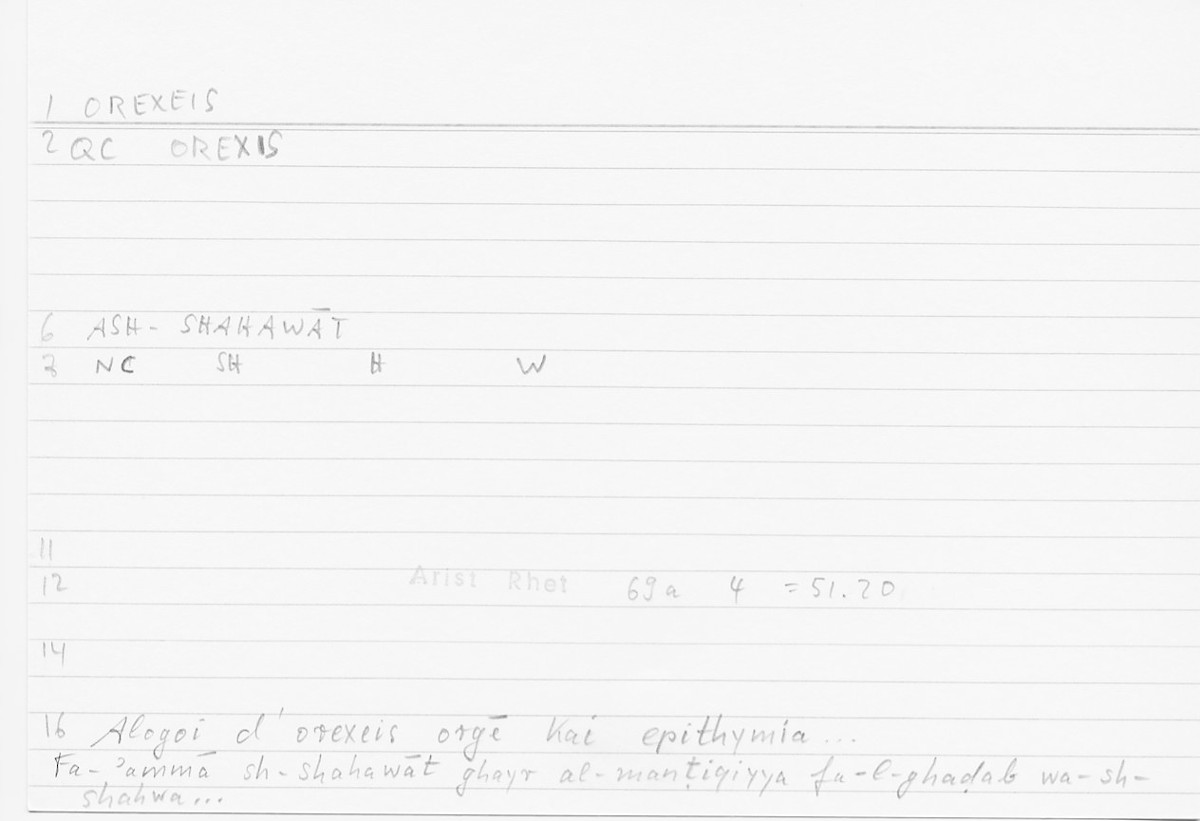 1 OREXEIS
2 QC OREXIS
6 ASH- SHAHAWĀT
3 NC SH H W
11
12 Arist Rhet 69a 4 = 51.20
14
16 Alogoi d' orexeis orgē kai epithymia ...
Fa-ʾammā sh-shahawāt ghayr al-manṭiqiyya fa-l-ghaḍab wa-sh-
shahwa...